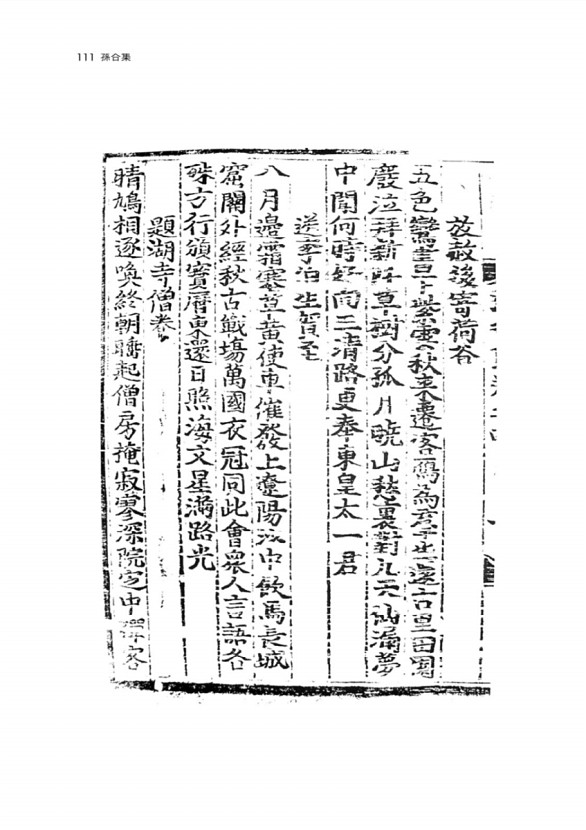 111 孫合集
放赦後寄荷谷
五色鸞書下紫雲秋來遷客
泣拜新 草樹分孤月曉山愁裏對九天仙漏夢
中聞何時好向三清路更奉東皇太一君
送李伯生賀至
八月邊霜塞草黃使車催發上遼陽沙中飮馬長城
窟關外經秋古戰場萬國衣冠同此會衆人言語各
殊方行頒寶曆東還日照海文星滿路光
題湖寺僧卷
晴鳩相逐喚終朝睡起僧房掩寂寥深院定中禪客